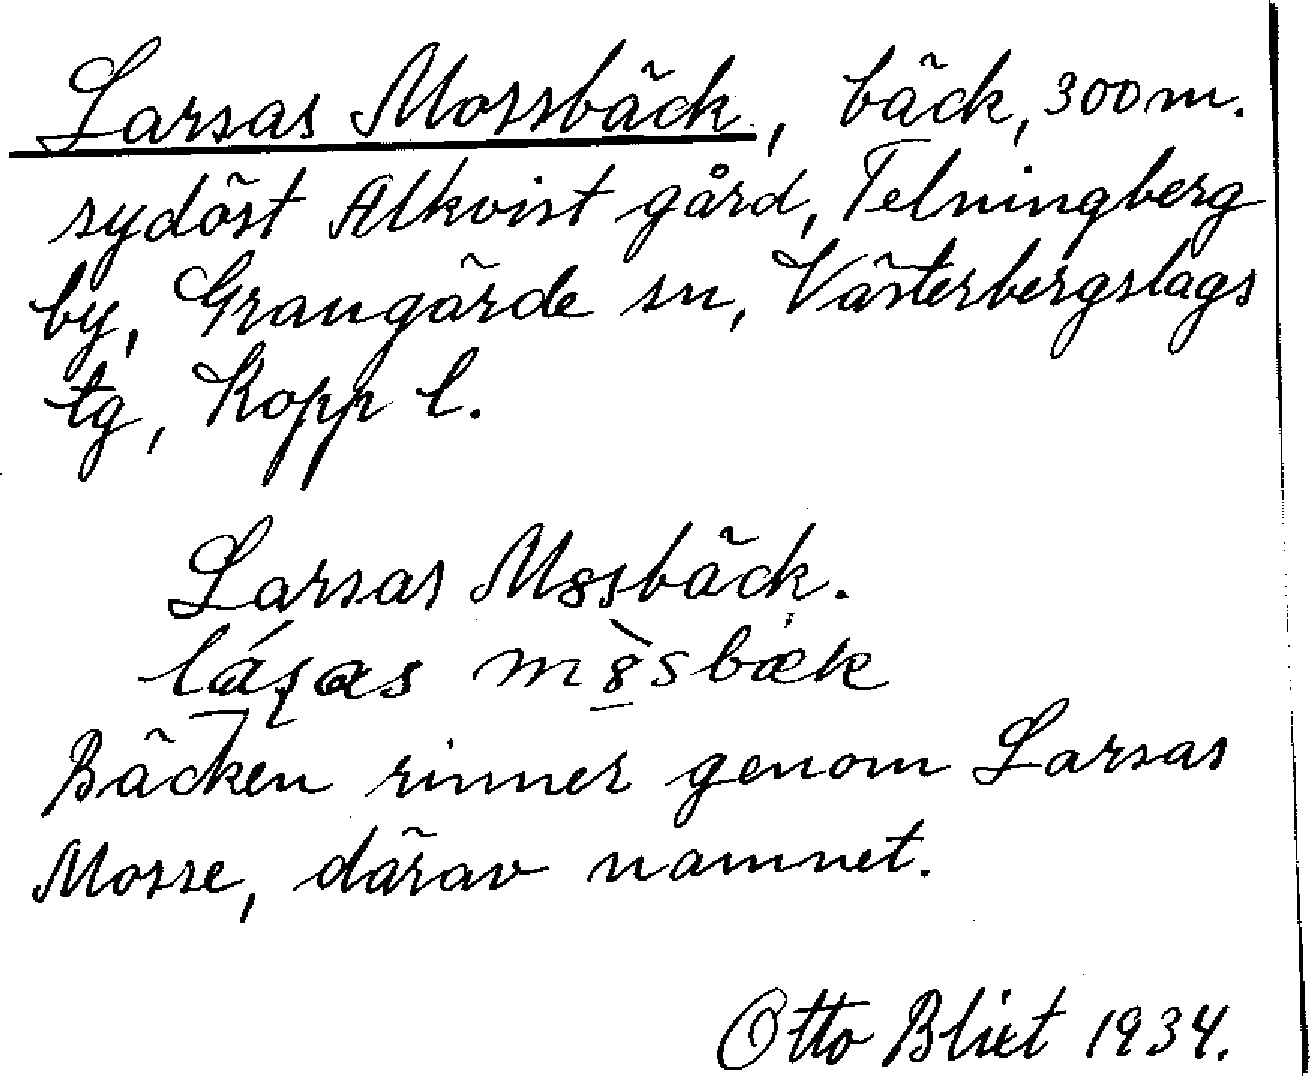 Larsas Mossbäck, bäck, 300 m.
sydöst Alkvist gård, Telningberg
by, Grangärde sn, Västerbergslags
tg, Kopp l.
Larsas M8sbäck.
lásas m8̀sbæk
Bäcken rinner genom Larsas
Mosse, därav namnet.
Otto Blixt 1934.